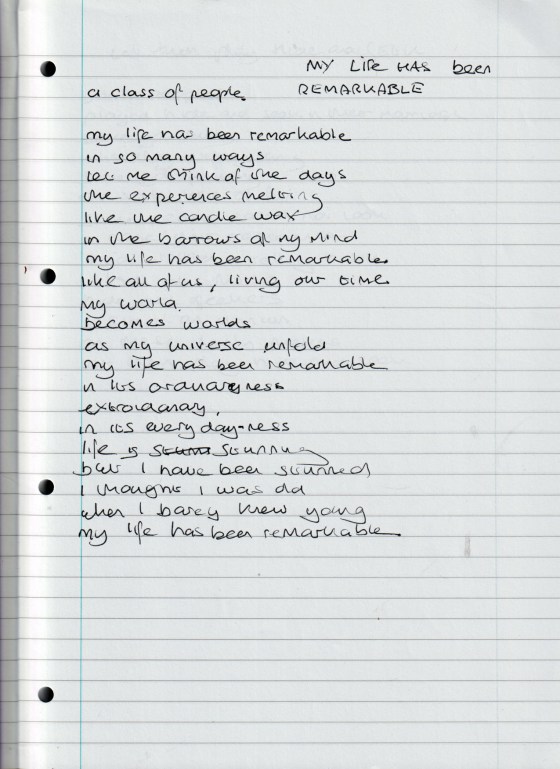 MY LIFE HAS been
a class of people REMARKABLE
my life has been remarkable
in so many ways
let me think of the days
the experiences melting
like the candle wax
in the barrows of my mind
my life has been remarkable
like all of us, living our time
my world
becomes worlds
as my universe unfold
my life has been remarkable
in its ordinaryness
extrordanary,
in its every day-ness
life is stunning
but I have been stunned
I thought I was old
when I barey knew young
my life has been remarkable